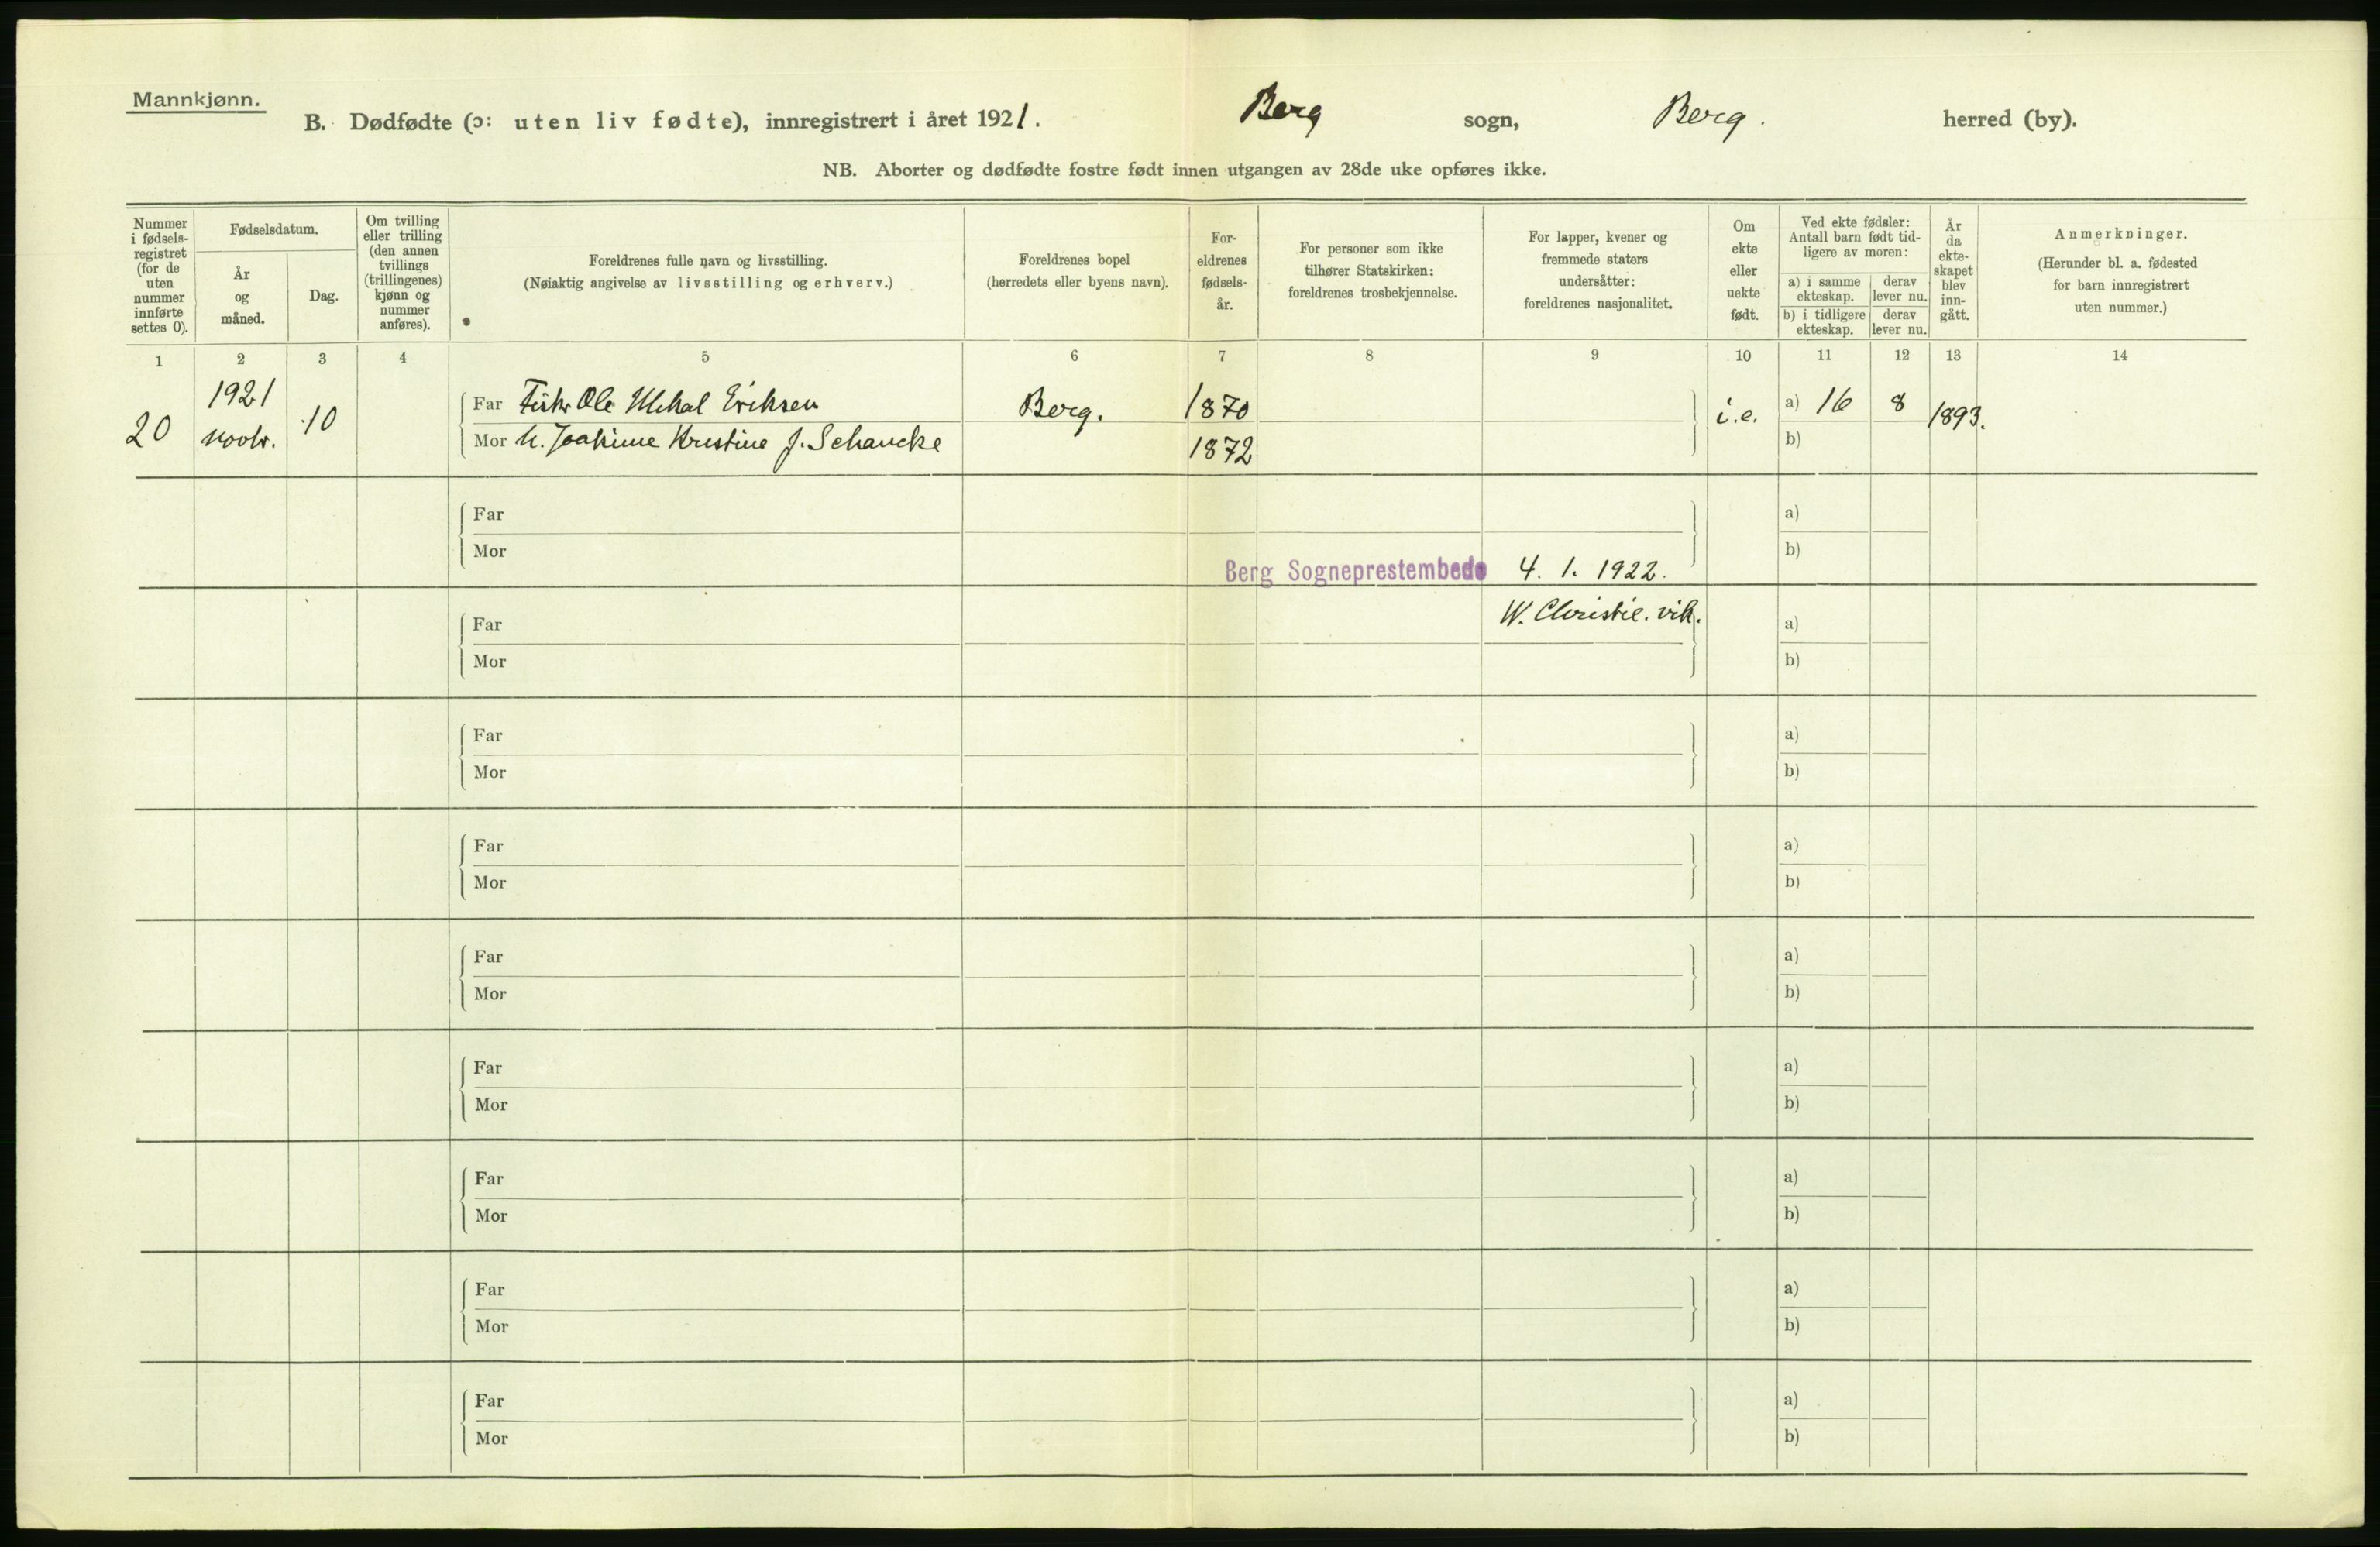 Mannkjønn.
B. Dødfødte (ɔ: uten liv fødte), innregistrert i året 1921. Berg sogn, Berg. herred (by).
NB. Aborter og dødfødte fostre født innen utgangen av 28de uke opføres ikke.
Nummer i fødsels-registret (for de uten nummer innførte settes 0).
Fødselsdatum.
År og måned.
Dag.
Om tvilling eller trilling (den annen tvillings (trillingenes) kjønn og nummer anføres).
Foreldrenes fulle navn og livsstilling.
(Nøiaktig angivelse av livsstilling og erhverv.)
Foreldrenes bopel
(herredets eller byens navn).
For-eldrenes fødsels-år.
For personer som ikke tilhører Statskirken: foreldrenes trosbekjennelse.
For lapper, kvener og fremmede staters undersåtter: foreldrenes nasjonalitet.
Om ekte eller uekte født.
Ved ekte fødsler: Antall barn født tid-ligere av moren:
a) i samme ekteskap.
derav lever nu.
b) i tidligere ekteskap.
derav lever nu.
År da ekte-skapet blev inn-gått.
Anmerkninger.
(Herunder bl. a. fødested for barn innregistrert uten nummer.)
1 2 3 4 5 6 7 8 9 10 11 12 13 14
20 1921 Novbr. 10
Far Fisker Ole Mikal Eriksen Berg. 1870 i.e. a) 16 8 1893.
Mor h. Joakime Kristine J. Schancke 1872 b)
Far a)
Mor b)
Berg Sogneprestembede 4. 1. 1922.
W. Christie. vik.
Far a)
Mor b)
Far a)
Mor b)
Far a)
Mor b)
Far a)
Mor b)
Far a)
Mor b)
Far a)
Mor b)
Far a)
Mor b)
Far a)
Mor b)